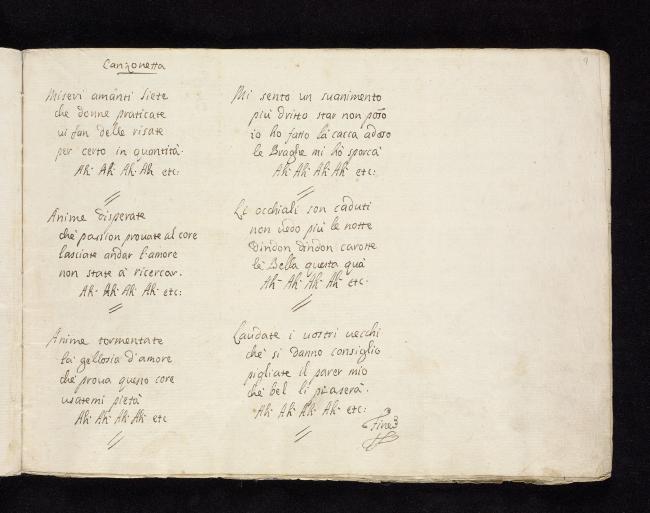 Canzonetta
9
Miseri amanti siete
che donne praticate
vi fan delle risate
per certo in quantità.
Ah. Ah. Ah. Ah etc:
Anime disperate
che passion provate al core
lasciate andar l'amore
non state à ricercar.
Ah. Ah. Ah. Ah. etc:
Anime tormentate
la gellosia d'amore
che prova questo core
usatemi pietà
Ah. Ah. Ah. Ah. etc
Mi sento un suanimento
più dritto star non posso
io ho fatto la cacca adoso
le Braghe mi hò sporcà
Ah. Ah. Ah. Ah. etc:
Li occhiali son caduti
non vedo più le notte
dindon dindon carotte
la Bella questa quà
Ah. Ah. Ah. Ah. etc:
Laudate i vostri vecchi
che si danno consiglio
pigliate il parer mio
che bel li piaserà.
Ah. Ah. Ah. Ah. etc:
Fine